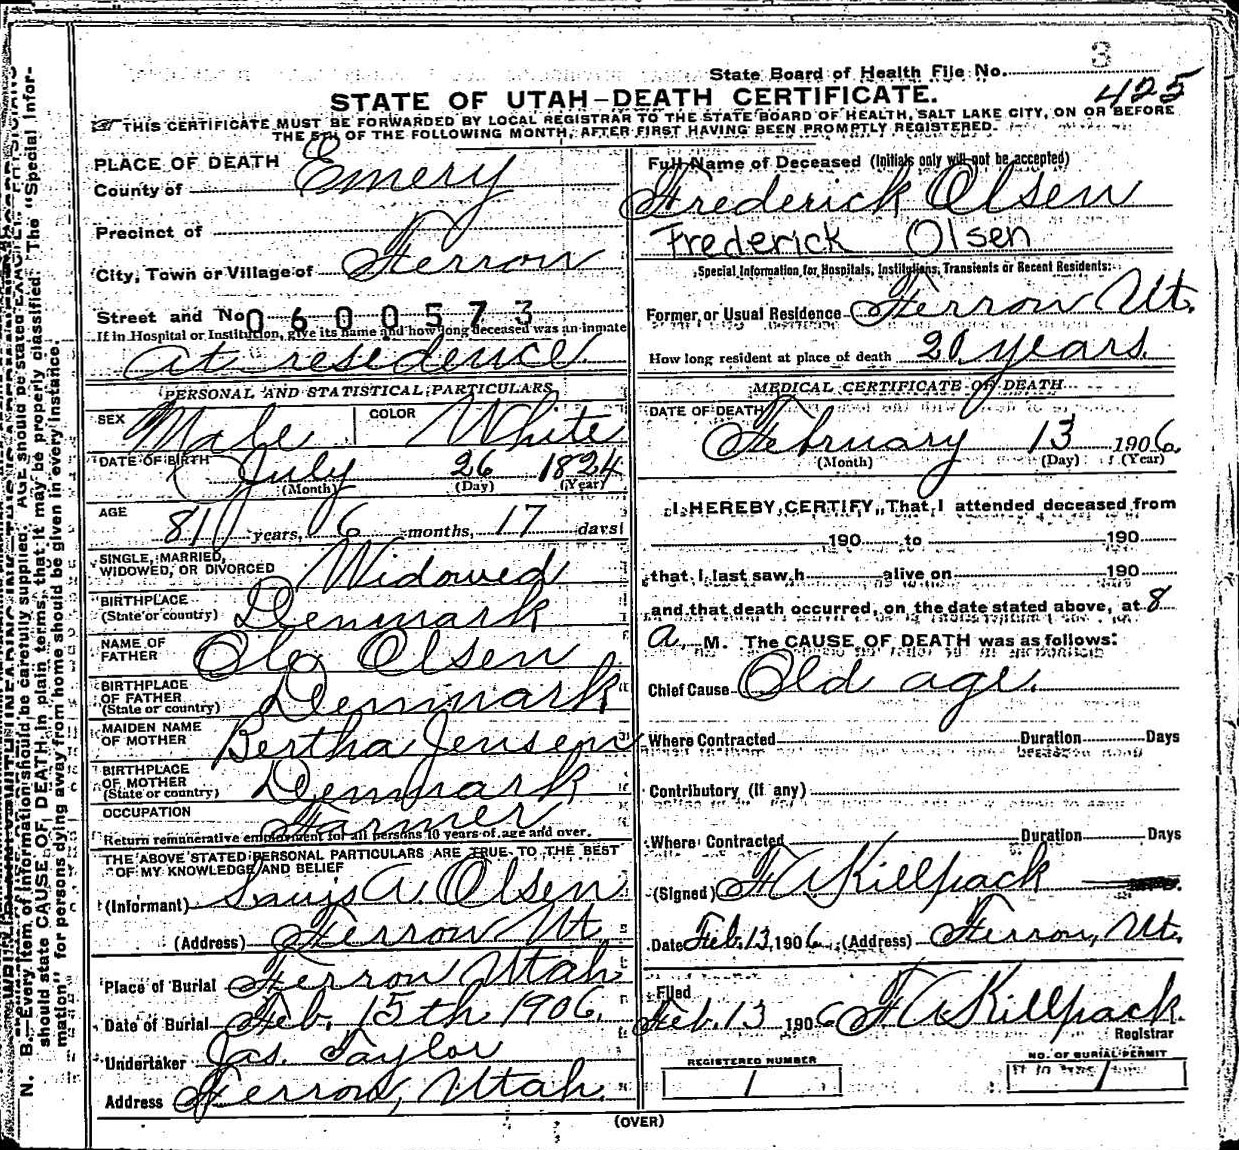 3
State Board of Health File No. 425
STATE OF UTAH—DEATH CERTIFICATE.
THIS CERTIFICATE MUST BE FORWARDED BY LOCAL REGISTRAR TO THE STATE BOARD OF HEALTH, SALT LAKE CITY, ON OR BEFORE
THE 5TH OF THE FOLLOWING MONTH, AFTER FIRST HAVING BEEN PROMPTLY REGISTERED.
PLACE OF DEATH
County of Emery
Precinct of
City, Town or Village of Ferron
Street and No. 0600573
If in Hospital or Institution, give its name and how long deceased was an inmate
at residence.
PERSONAL AND STATISTICAL PARTICULARS
SEX Male COLOR White
DATE OF BIRTH July 26 1824
(Month) (Day) (Year)
AGE
81 years, 6 months, 17 days
SINGLE, MARRIED,
WIDOWED, OR DIVORCED Widowed
BIRTHPLACE
(State or country) Denmark
NAME OF
FATHER Ole Olsen
BIRTHPLACE
OF FATHER
(State or country) Denmark
MAIDEN NAME
OF MOTHER Bertha Jensen
BIRTHPLACE
OF MOTHER
(State or country) Denmark
OCCUPATION Farmer
Return remunerative employment for all persons 10 years of age and over.
THE ABOVE STATED PERSONAL PARTICULARS ARE TRUE TO THE BEST
OF MY KNOWLEDGE AND BELIEF
(Informant) Louis A. Olsen
(Address) Ferron Ut.
Place of Burial Ferron Utah
Date of Burial Feb. 15th 1906.
Undertaker Jas. Taylor
Address Ferron, Utah.
Full Name of Deceased (Initials only will not be accepted)
Frederick Olsen
Frederick Olsen
Special Information for Hospitals, Institutions, Transients or Recent Residents:
Former or Usual Residence Ferron Ut.
How long resident at place of death 20 years.
MEDICAL CERTIFICATE OF DEATH
DATE OF DEATH
February 13 1906.
(Month) (Day) (Year)
I HEREBY CERTIFY, That I attended deceased from
190 to 190
that I last saw h alive on 190
and that death occurred, on the date stated above, at 8
a. M. The CAUSE OF DEATH was as follows:
Chief Cause Old age.
Where Contracted Duration Days
Contributory (If any)
Where Contracted Duration Days
(Signed) F A Killpack
Date Feb. 13, 1906. (Address) Ferron, Ut.
Filed
Feb. 13 1906 F A Killpack.
Registrar
REGISTERED NUMBER
1
NO. OF BURIAL PERMIT
1
(OVER)
N. B.—Every item of information should be carefully supplied. AGE should be stated EXACTLY. PHYSICIANS
should state CAUSE OF DEATH in plain terms, that it may be properly classified. The "Special Infor-
mation" for persons dying away from home should be given in every instance.